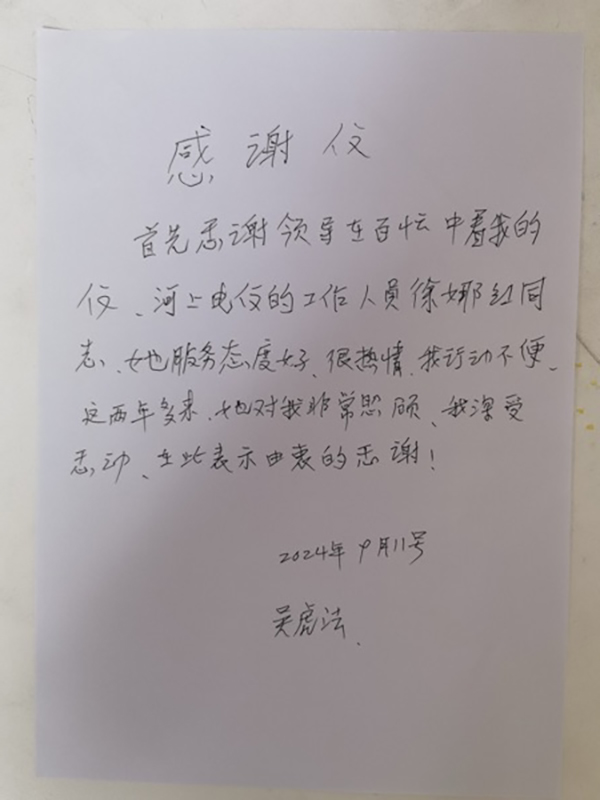 感谢仪
首先感谢领导在百忙中看我的
仪、河上电仪的工作人员徐娜红同
志、她服务态度好、很热情、我行动不便、
这两年多来、她对我非常照顾、我深受
感动、在此表示由衷的感谢！
2024年9月11号
吴虎法